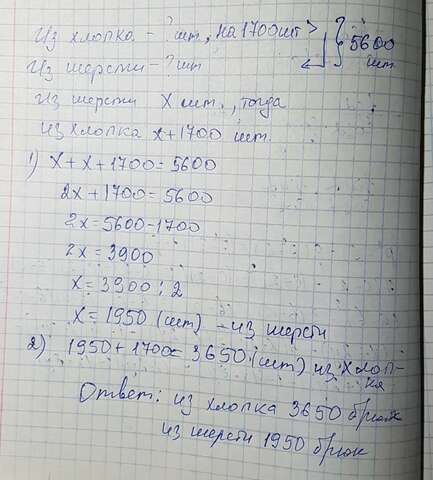 Из хлопка - ? шт, на 1700 шт >
Из шерсти - ? шт
5600 шт
Из шерсти x шт., тогда
из хлопка x+1700 шт.
1) x+x+1700=5600
2x+1700=5600
2x=5600-1700
2x=3900
x=3900:2
x=1950 (шт) - из шерсти
2) 1950+1700=3650 (шт) из хлоп-
ка
Ответ: из хлопка 3650 брюк
из шерсти 1950 брюк